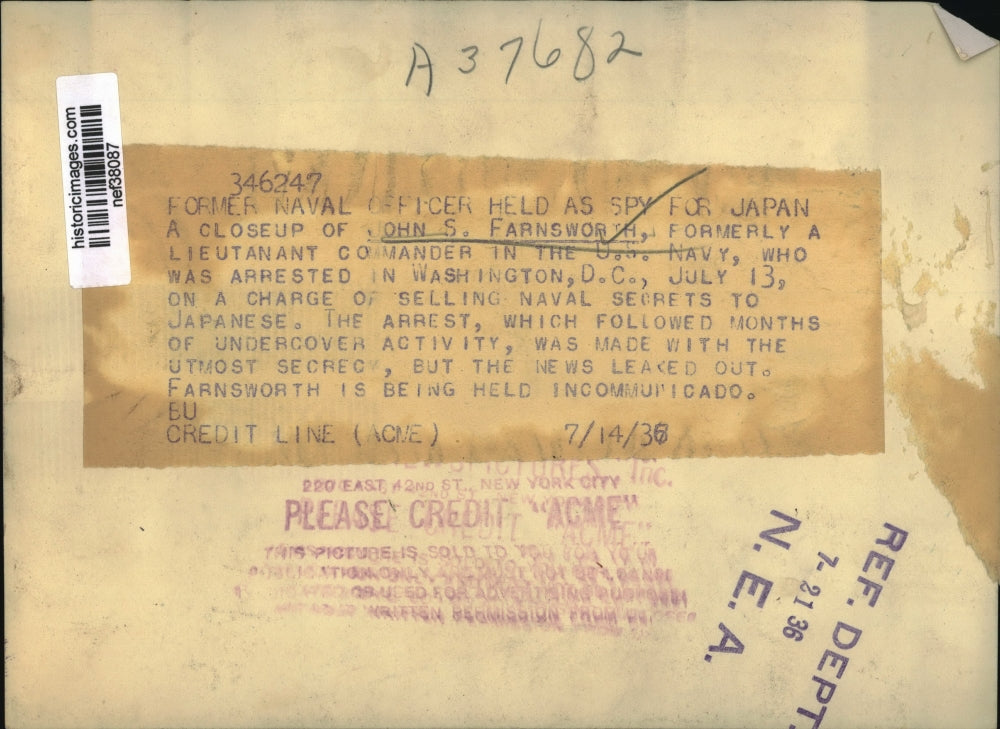 A37682
historicimages.com
nef38087
346247
FORMER NAVAL OFFICER HELD AS SPY FOR JAPAN
A CLOSEUP OF JOHN S. FARNSWORTH, FORMERLY A
LIEUTANANT COMMANDER IN THE U.S. NAVY, WHO
WAS ARRESTED IN WASHINGTON, D.C., JULY 13,
ON A CHARGE OF SELLING NAVAL SECRETS TO
JAPANESE. THE ARREST, WHICH FOLLOWED MONTHS
OF UNDERCOVER ACTIVITY, WAS MADE WITH THE
UTMOST SECRECY, BUT THE NEWS LEAKED OUT.
FARNSWORTH IS BEING HELD INCOMMUNICADO.
BU
CREDIT LINE (ACME) 7/14/36
Inc.
220 EAST 42ND ST., NEW YORK CITY
PLEASE CREDIT "ACME"
THIS PICTURE IS SOLD TO YOU FOR YOUR
PUBLICATION ONLY
OR USED FOR ADVERTISING
WRITTEN PERMISSION FROM
REF. DEPT.
7-21 36
N. E. A.